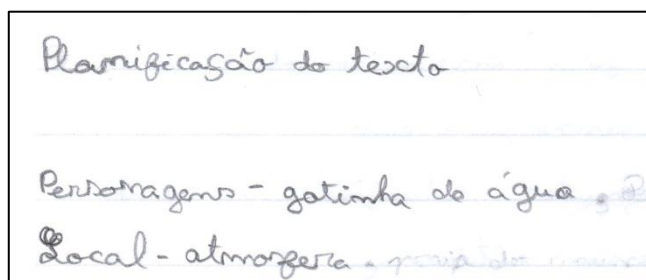 Planificação do texto
Personagens - gotinha de água.
Local - atmosfera.